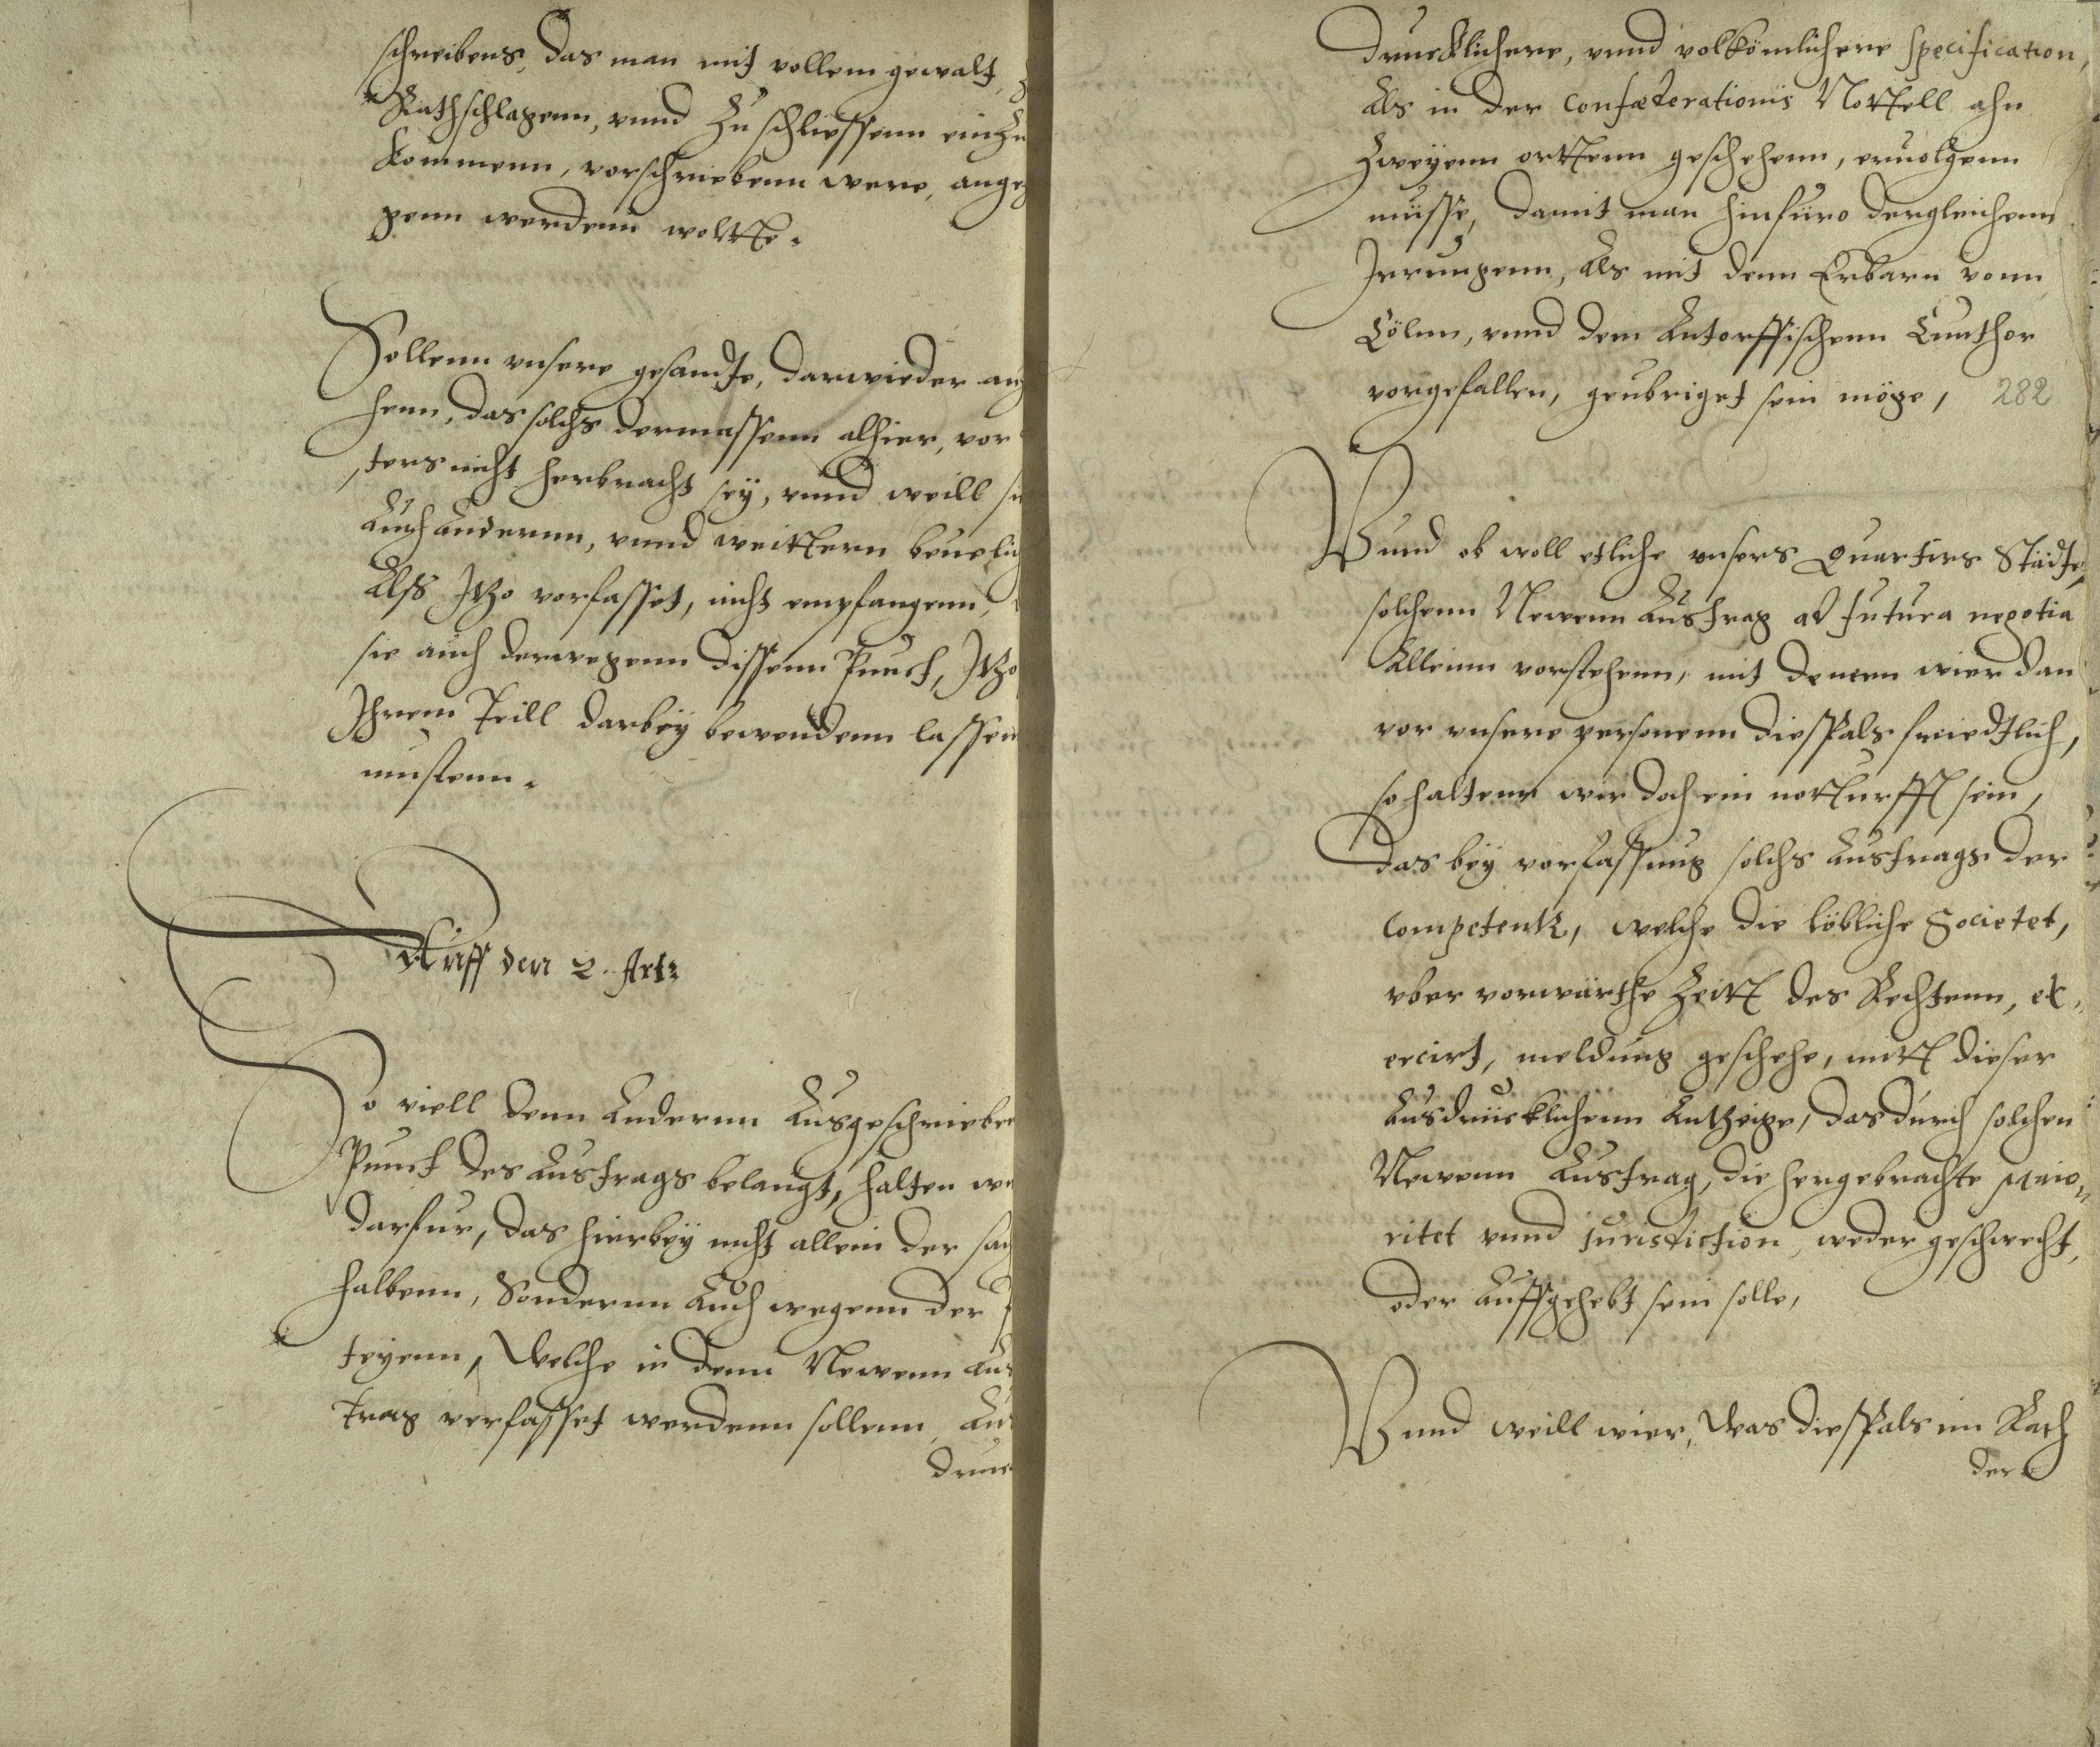 schreibens, das man mit vollem gewalt,
Rathschlagenn, vnnd Zu schliessenn einZu
kommenn, vorschriebenn were, ange
genn werdenn woltte.
Sollenn vnsere gesandte, darwieder an
henn, das solchs dermassenn alhier, vor
ters nicht herbracht seÿ, vnnd weill
Auch Andernn, vnnd weitternn beuelich
Alß Itzo vorfasset, nicht empfangenn,
sie auch derwegenn dissenn Punct, Itzo
Ihrem Teill darbeÿ bewendenn lassen
mustenn.
Auff den 2. Art:
So viell denn Andernn Ausgeschrieben
Punct des Austrags belangt, halten wir
darfur, das hierbeÿ nicht allein der sach
halbenn, Sondernn Auch wegenn der
teyenn, Welche in denn Newenn Aus
trag verfasset werdenn sollenn, Aus
druck
drucklichere, vnnd volkömlichere specification,
Als in der Confœderationis Nottell ahn
Zweÿenn orttenn geschehenn, eruolgenn
müsse, damit man hinfüro dergleichenn
Irrungenn, Als mit denn Erbarn vonn
Cölnn, vnnd dem Antorffischenn Cunthor
vorgefallen, geubriget sein möge, 282
Vnnd ob woll etliche vnsers Quartirs Städte,
solchenn Newenn Austrag ad futura negotia
Alleinn vorstehenn, mit denenn wier dan
vor vnsere personenn dießfals friedtlich,
so haltenn wir doch ein notturfft sein,
das beÿ vorfassung solchs Austrags der
Competentz, welche die löbliche Societet,
vber vorwärthe Zeitt des Rechtenn, ex,
ercirt, meldung geschehe, mitt dieser
Ausdrücklichenn Antzeige, das durch solchen
Newenn Austrag, die hergebrachte Maio,,
ritet vnnd Jurisdiction, weder geschwecht,
oder Auffgehebt sein solle,
Vnnd weill wier, Was dießfals im Rath
der